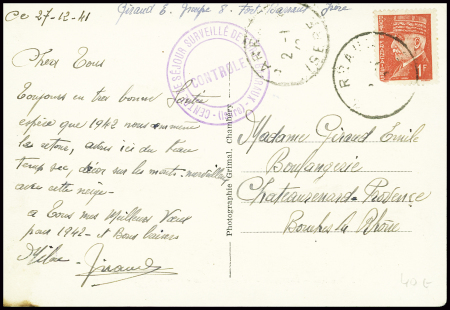 Ce 27-12-41
Giraud E. Groupe S. Fort-Barraux Isère
CENTRE DE SÉJOUR SURVEILLÉ DE
CONTROLE
Chers Tous
Toujours en très bonne Santé
espère que 1942 nous amènera
le retour, adieu ici du beau
temps sec, décor sur les monts merveilleux
avec cette neige.
à Tous mes Meilleurs Vœux
pour 1942 - et Bons baisers
Giraud
Photographie Grimal, Chambéry
Madame Giraud Emile
Boulangerie
Chateaurenard-Provence
Bouches du Rhône
40 €